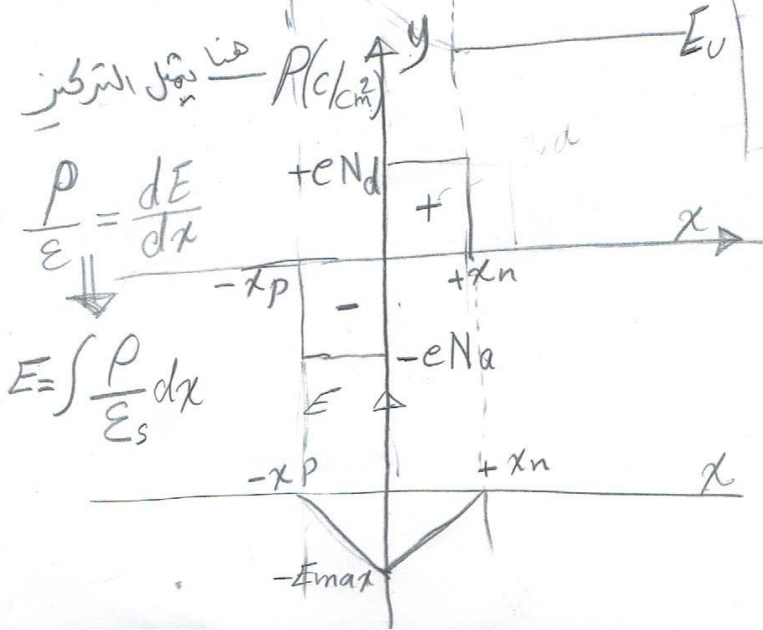 y
E_v
هنا يمثل التركيز — ρ(c/cm²)
+eNd
+
ρ/ε = dE/dx
x
-xp
+xn
-
-eNa
E = ∫ ρ/εs dx
E
-xp
+xn
x
-Emax